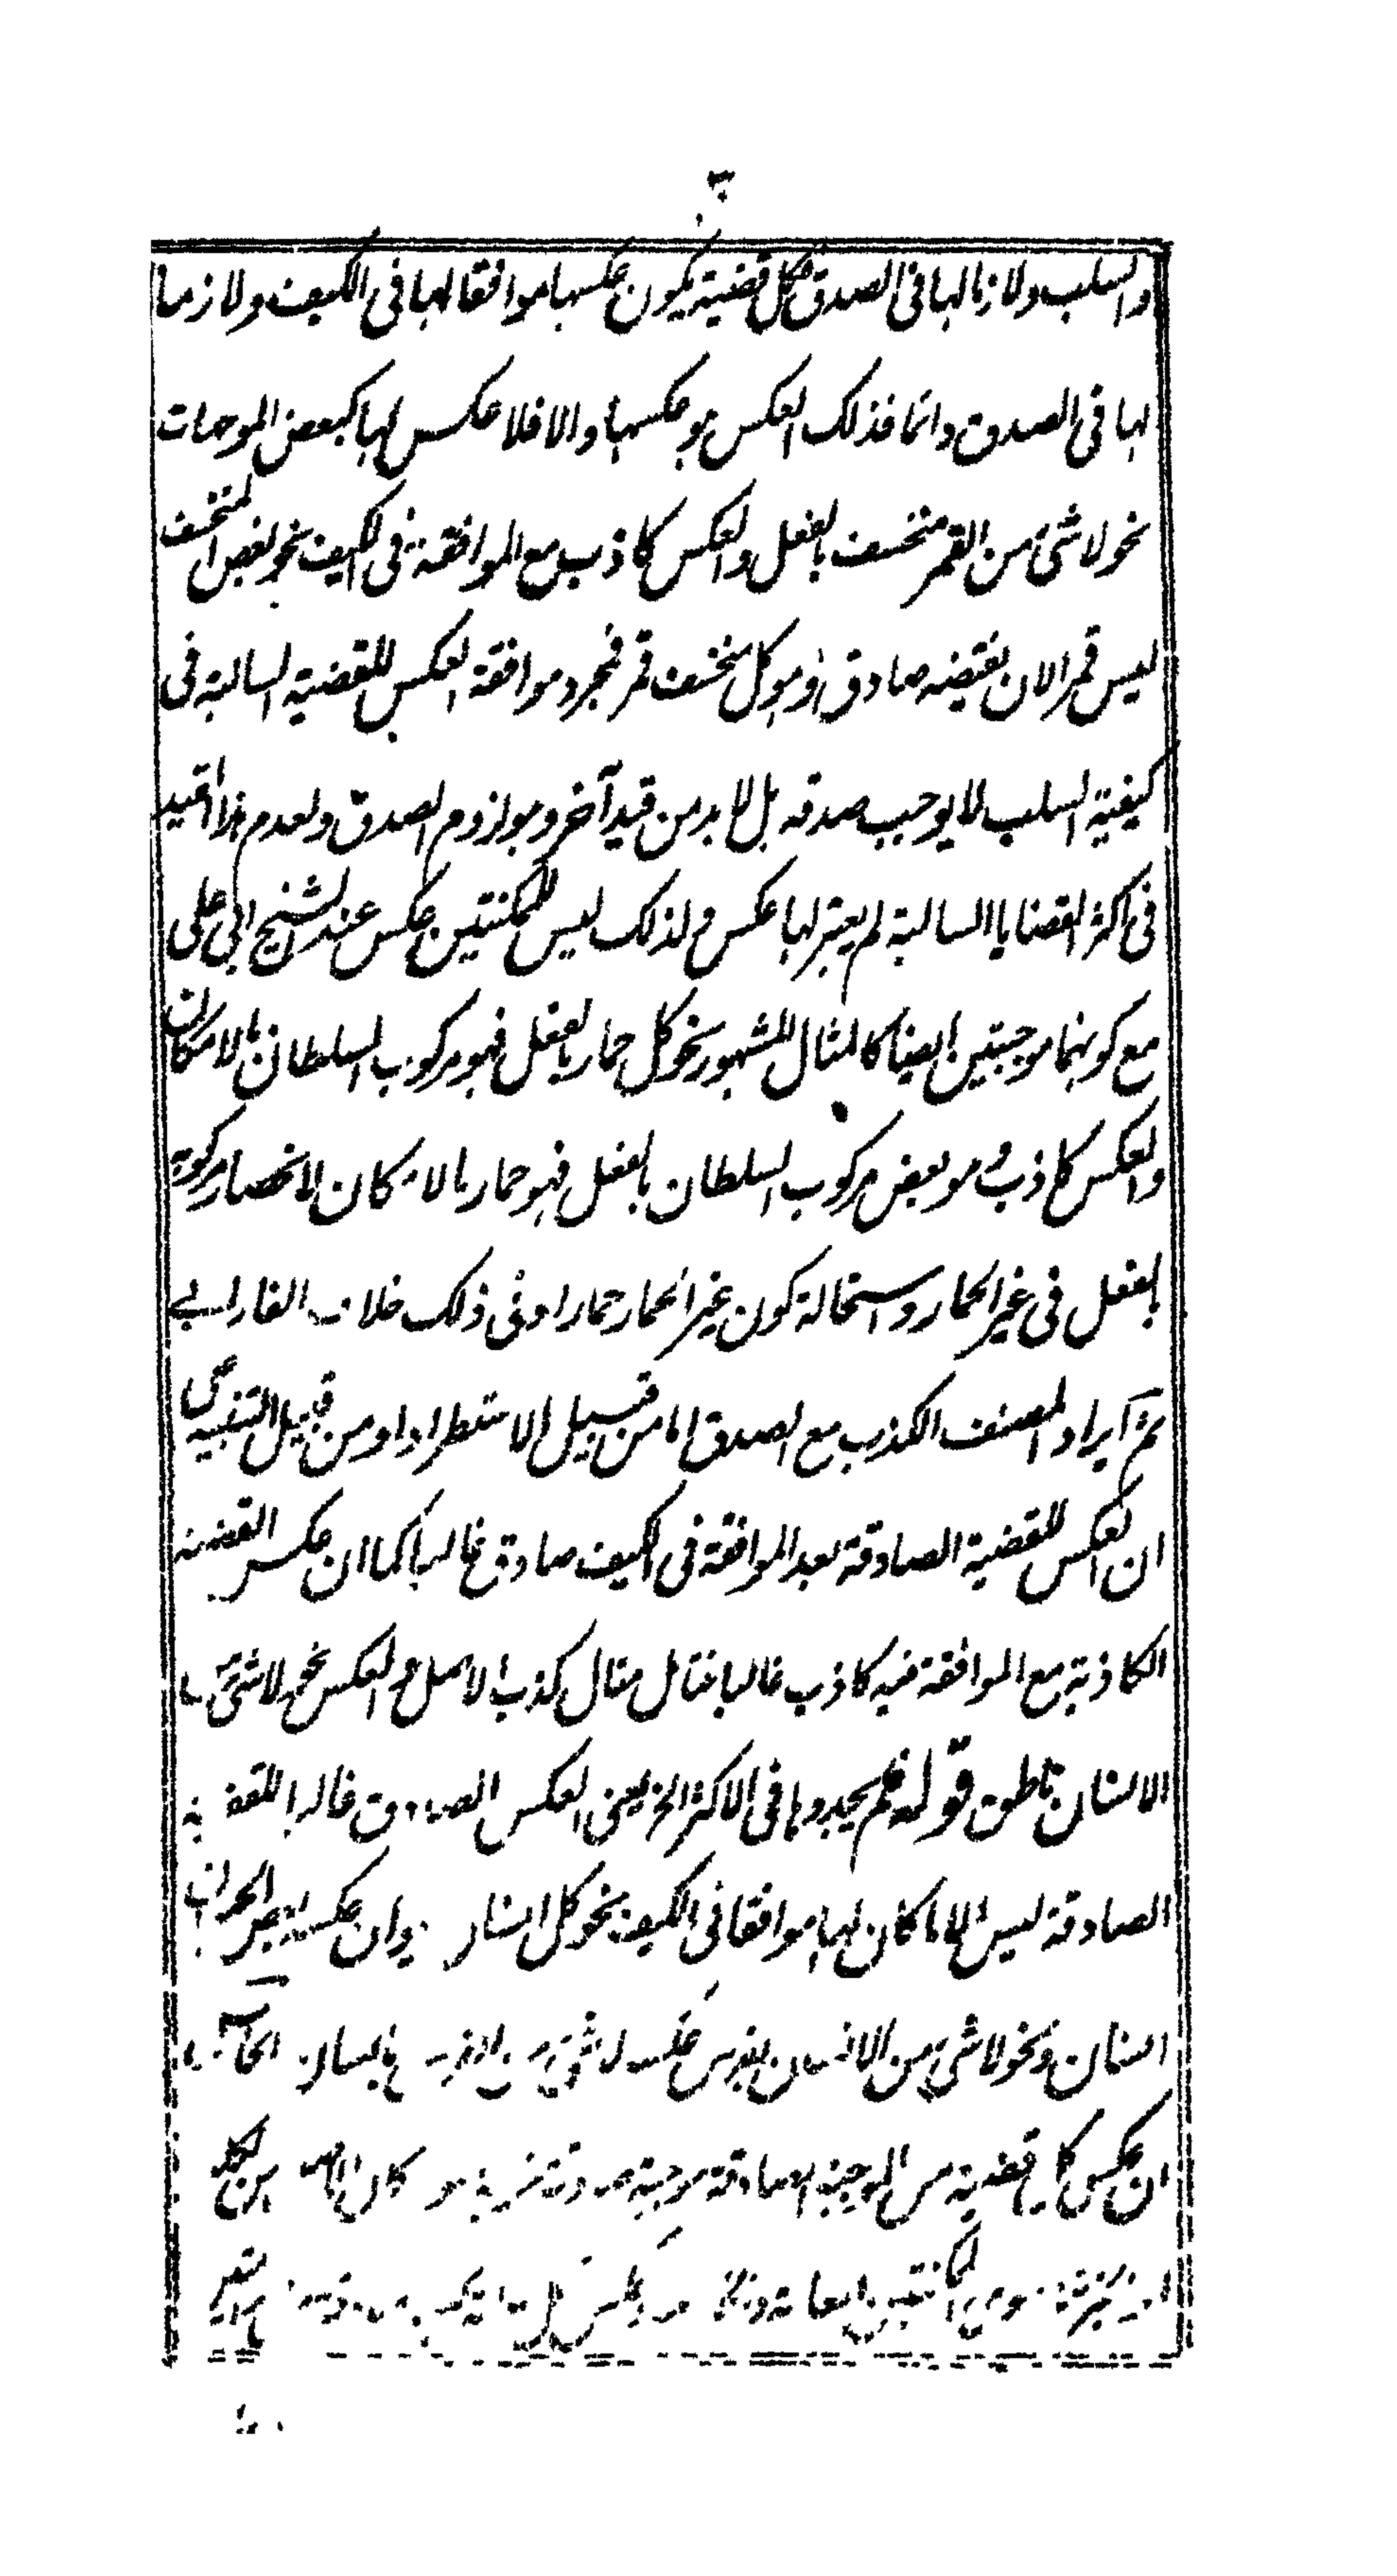 والسلب ولازما لها فى الصدق فكل قضية يكون عكسها موافقا لها فى الكيف ولازما
لها فى الصدق دائما فذلك العكس هو عكسها والا فلا عكس لها كبعض الموجهات
نحو لا شئ من القمر منخسف بالفعل والعكس كاذب مع الموافقة فى الكيف نحو بعض المنخسف
ليس قمرا لان نقيضه صادق وهو كل منخسف قمر فمجرد موافقة العكس للقضية السالبة فى
كيفية السلب لا يوجب صدقه بل لا بد من قيد آخر وهو لزوم الصدق ولعدم هذا القيد
فى اكثر القضايا السالبة لم يعتبر لها عكس ولذلك ليس للممكنتين عكس عند الشيخ ابى على
مع كونهما موجبتين ايضا كالمثال المشهور نحو كل حمار بالفعل فهو مركوب السلطان بالامكان
والعكس كاذب وهو بعض مركوب السلطان بالفعل فهو حمار بالامكان لانحصار مركوبه
بالفعل فى غير الحمار واستحالة كون غير الحمار حمارا وفى ذلك خلاف الفارابے
ثم ايراد المصنف الكذب مع الصدق اما من قبيل الاستطراد او من قبيل التنبيه على
ان العكس للقضية الصادقة بعد الموافقة فى الكيف صادق غالبا كما ان عكس القضية
الكاذبة مع الموافقة فيه كاذب غالبا مثال كذب الاصل والعكس نحو لا شئ من
الانسان بناطق قوله فلم يجدوها فى الاكثر الخ يعنى العكس الصادق غالبا للقضية
الصادقة ليس الا ما كان لها موافقا فى الكيف نحو كل انسان حيوان عكسه بعض الحيوان
انسان ونحو لا شئ من الانسان بفرس عكسه لا شئ من الفرس بانسان
ان عكس كل قضية من الموجبة الصادقة موجبة صادقة